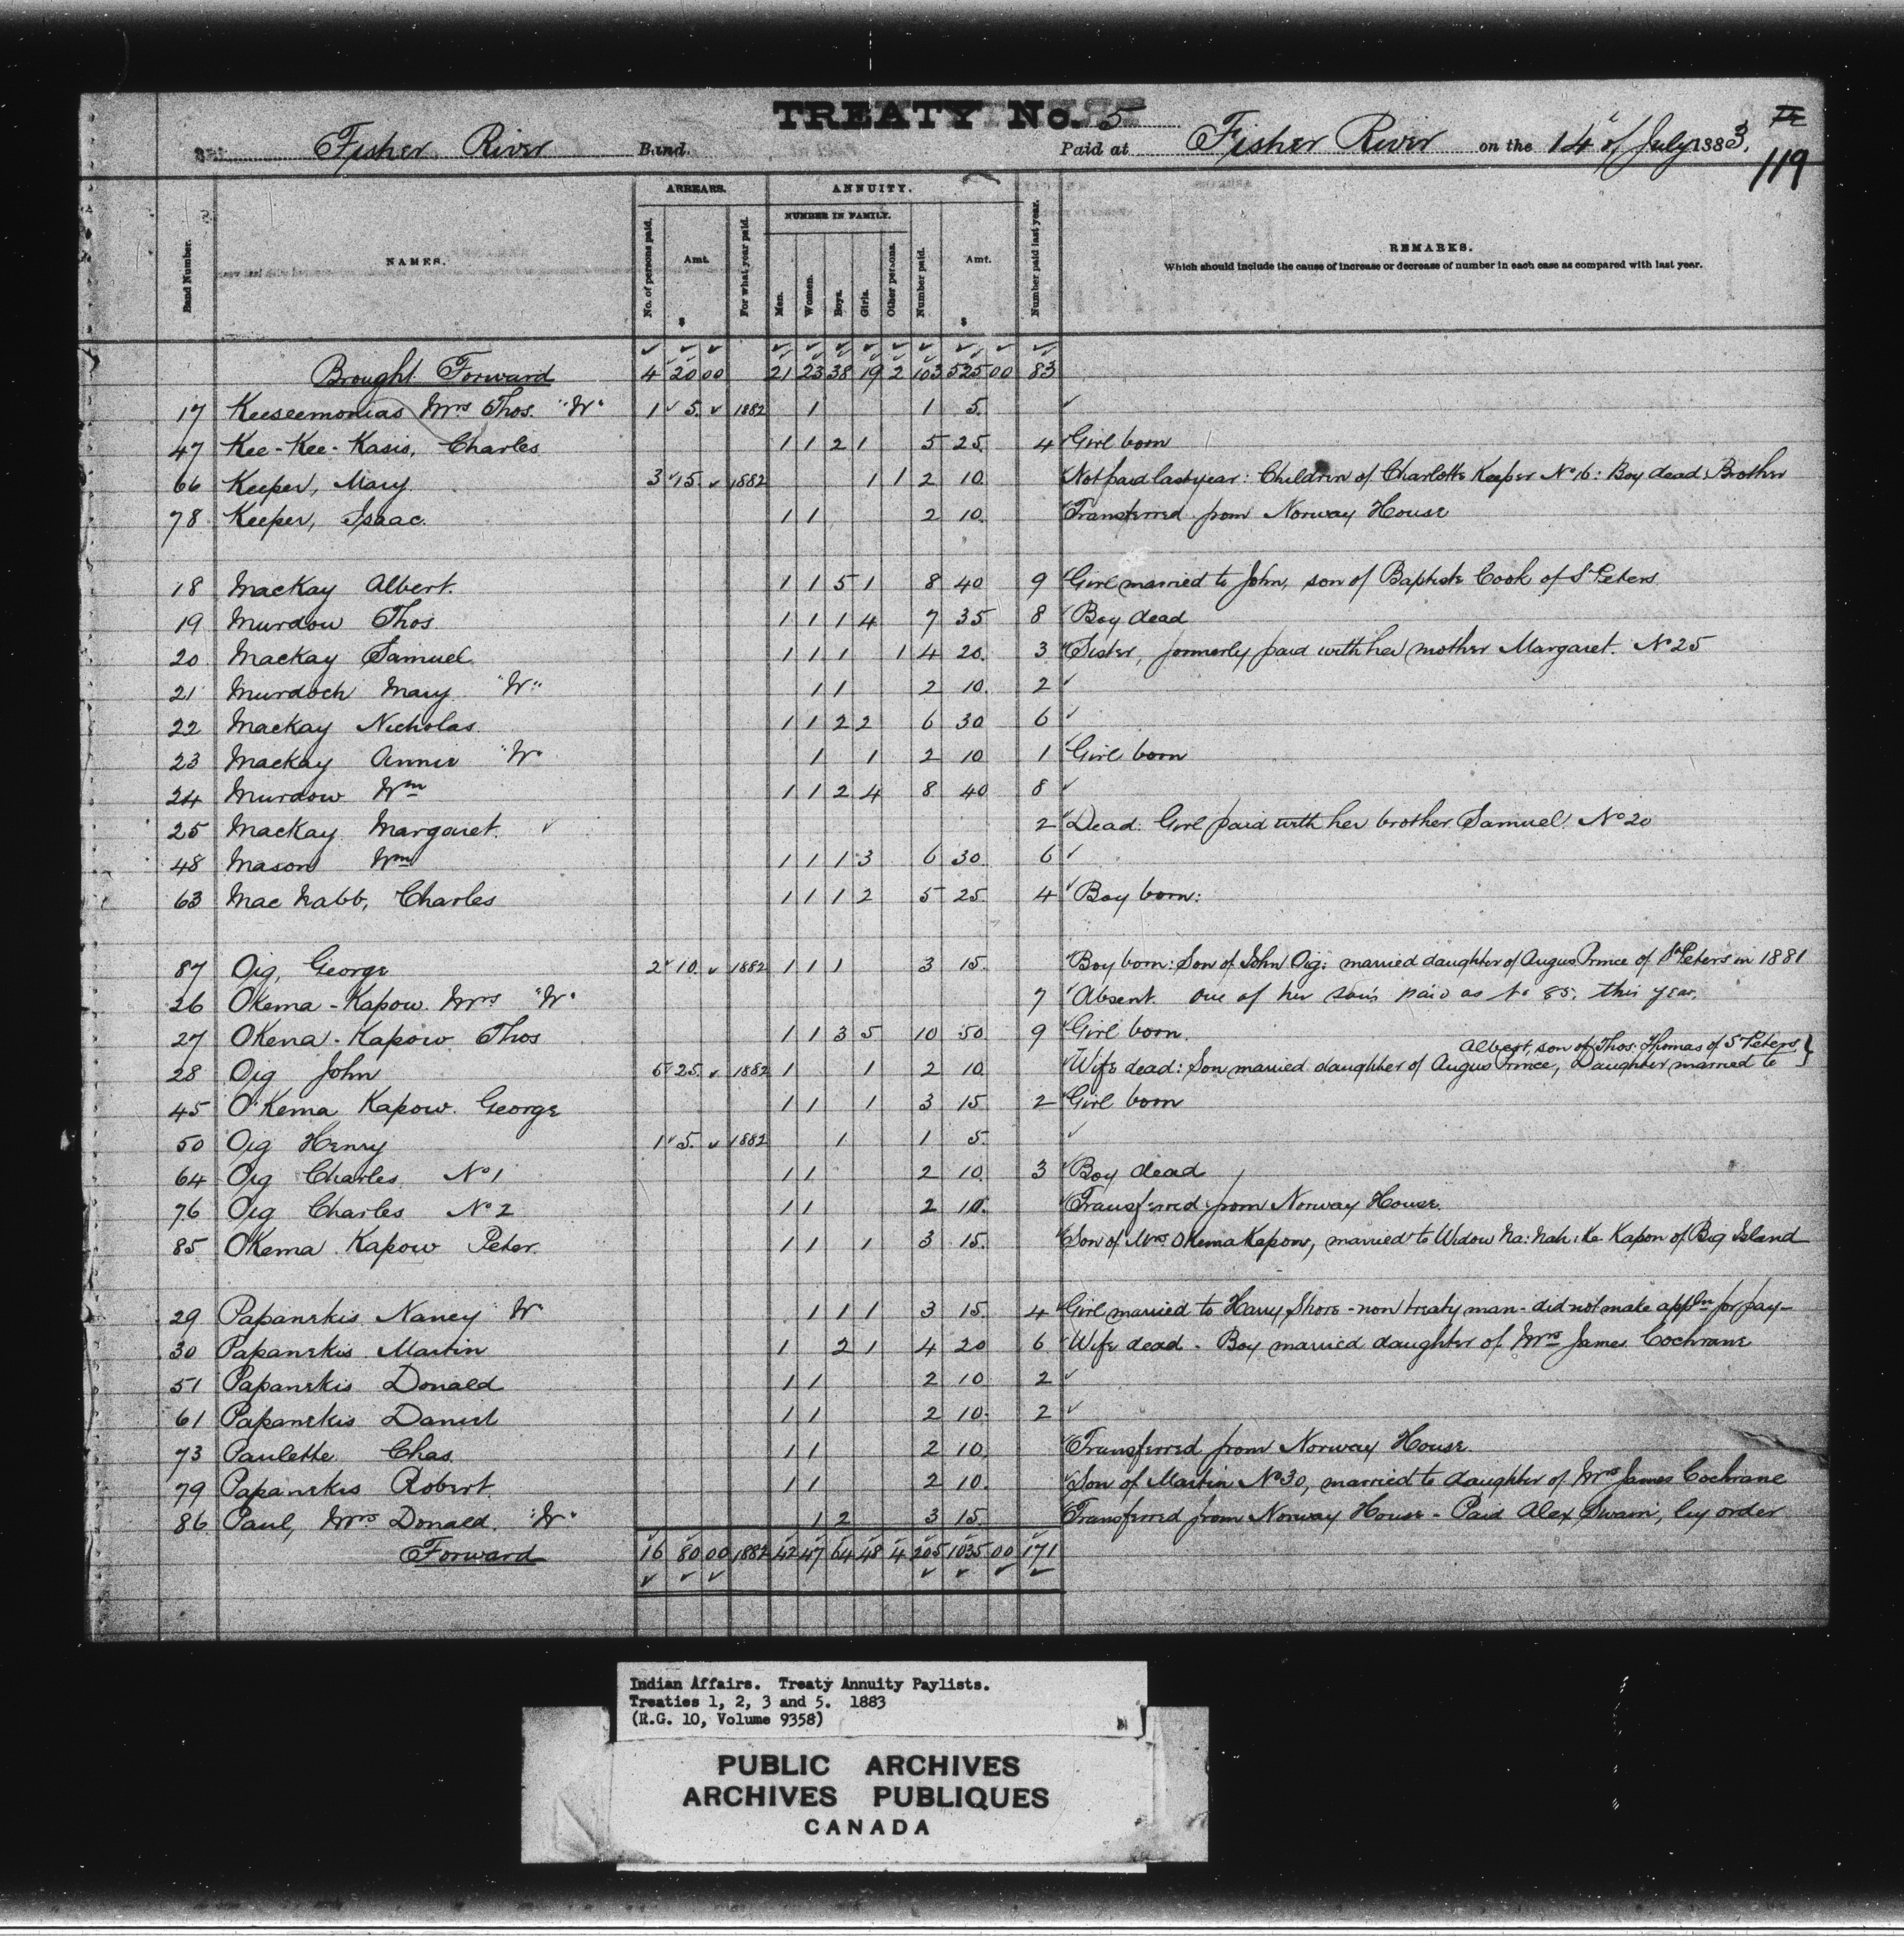 TREATY No. 5
Fisher River Band. Paid at Fisher River on the 14th of July 1883,
119
Band Number. NAMES. ARREARS. No. of persons paid. Amt. $ For what year paid. ANNUITY. NUMBER IN FAMILY. Men. Women. Boys. Girls. Other persons. Number paid. Amt. $ Number paid last year. REMARKS.
Which should include the cause of increase or decrease of number in each case as compared with last year.
Brought Forward 4 20 00 21 23 38 19 2 103 525 00 83
17 Keeseemonias Mrs Thos. "W" 1 5. 1882 1 1 5.
47 Kee-Kee-Kasis, Charles 1 1 2 1 5 25. 4 Girl born
66 Keeper, Mary 3 15. 1882 1 1 2 10 Not paid last year: Children of Charlotte Keeper No 16: Boy dead: Brother
78 Keeper, Isaac. 1 1 2 10. Transferred from Norway House
18 MacKay Albert. 1 1 5 1 8 40 9 Girl married to John, son of Baptiste Cook of St Peters
19 Murdow Thos 1 1 1 4 7 35 8 Boy dead
20 MacKay Samuel 1 1 1 1 4 20. 3 Sister, formerly paid with her mother Margaret. No 25
21 Murdoch Mary "W" 1 1 2 10. 2
22 MacKay Nicholas 1 1 2 2 6 30 6
23 MacKay Annie "W" 1 1 2 10 1 Girl born
24 Murdow Wm 1 1 2 4 8 40 8
25 MacKay Margaret. 2 Dead. Girl paid with her brother Samuel. No 20
48 Mason Wm 1 1 1 3 6 30. 6
63 Mac Nabb, Charles 1 1 1 2 5 25. 4 Boy born:
87 Oig, George 2 10. 1882 1 1 1 3 15. Boy born: Son of John Oig: married daughter of Angus Prince of St Peters in 1881
26 Okema-Kapow. Mrs "W" 7 Absent. one of her sons paid as No 85. this year.
27 Okema-Kapow Thos 1 1 3 5 10 50. 9 Girl born.
Albert, son of Thos. Thomas of St Peters
28 Oig John 5 25. 1882 1 1 2 10 Wife dead: Son married daughter of Angus Prince, Daughter married to
45 O'Kema Kapow. George 1 1 1 3 15 2 Girl born
50 Oig Henry 1 5. 1882 1 1 5.
64 Oig Charles No 1 1 1 2 10. 3 Boy dead
76 Oig Charles No 2 1 1 2 10. Transferred from Norway House.
85 OKema Kapow Peter. 1 1 1 3 15. Son of Mrs Okema Kapow, married to Widow Na: Nah: Ke Kapon of Big Island
29 Papanekis Nancy "W" 1 1 1 3 15. 4 Girl married to Harry Shore - non treaty man - did not make appln for pay-
30 Papanekis Martin 1 2 1 4 20 6 Wife dead - Boy married daughter of Mrs James Cochrane
51 Papanekis Donald 1 1 2 10 2
61 Papanekis Daniel 1 1 2 10. 2
73 Paulette Chas. 1 1 2 10. Transferred from Norway House.
79 Papanekis Robert 1 1 2 10. Son of Martin No 30, married to daughter of Mrs James Cochrane
86 Paul, Mrs Donald. "W" 1 2 3 15. Transferred from Norway House - Paid Alex Swain, by order
Forward 16 80 00 1882 42 47 64 48 4 205 1035 00 171
Indian Affairs. Treaty Annuity Paylists.
Treaties 1, 2, 3 and 5. 1883
(R.G. 10, Volume 9358)
PUBLIC ARCHIVES
ARCHIVES PUBLIQUES
CANADA